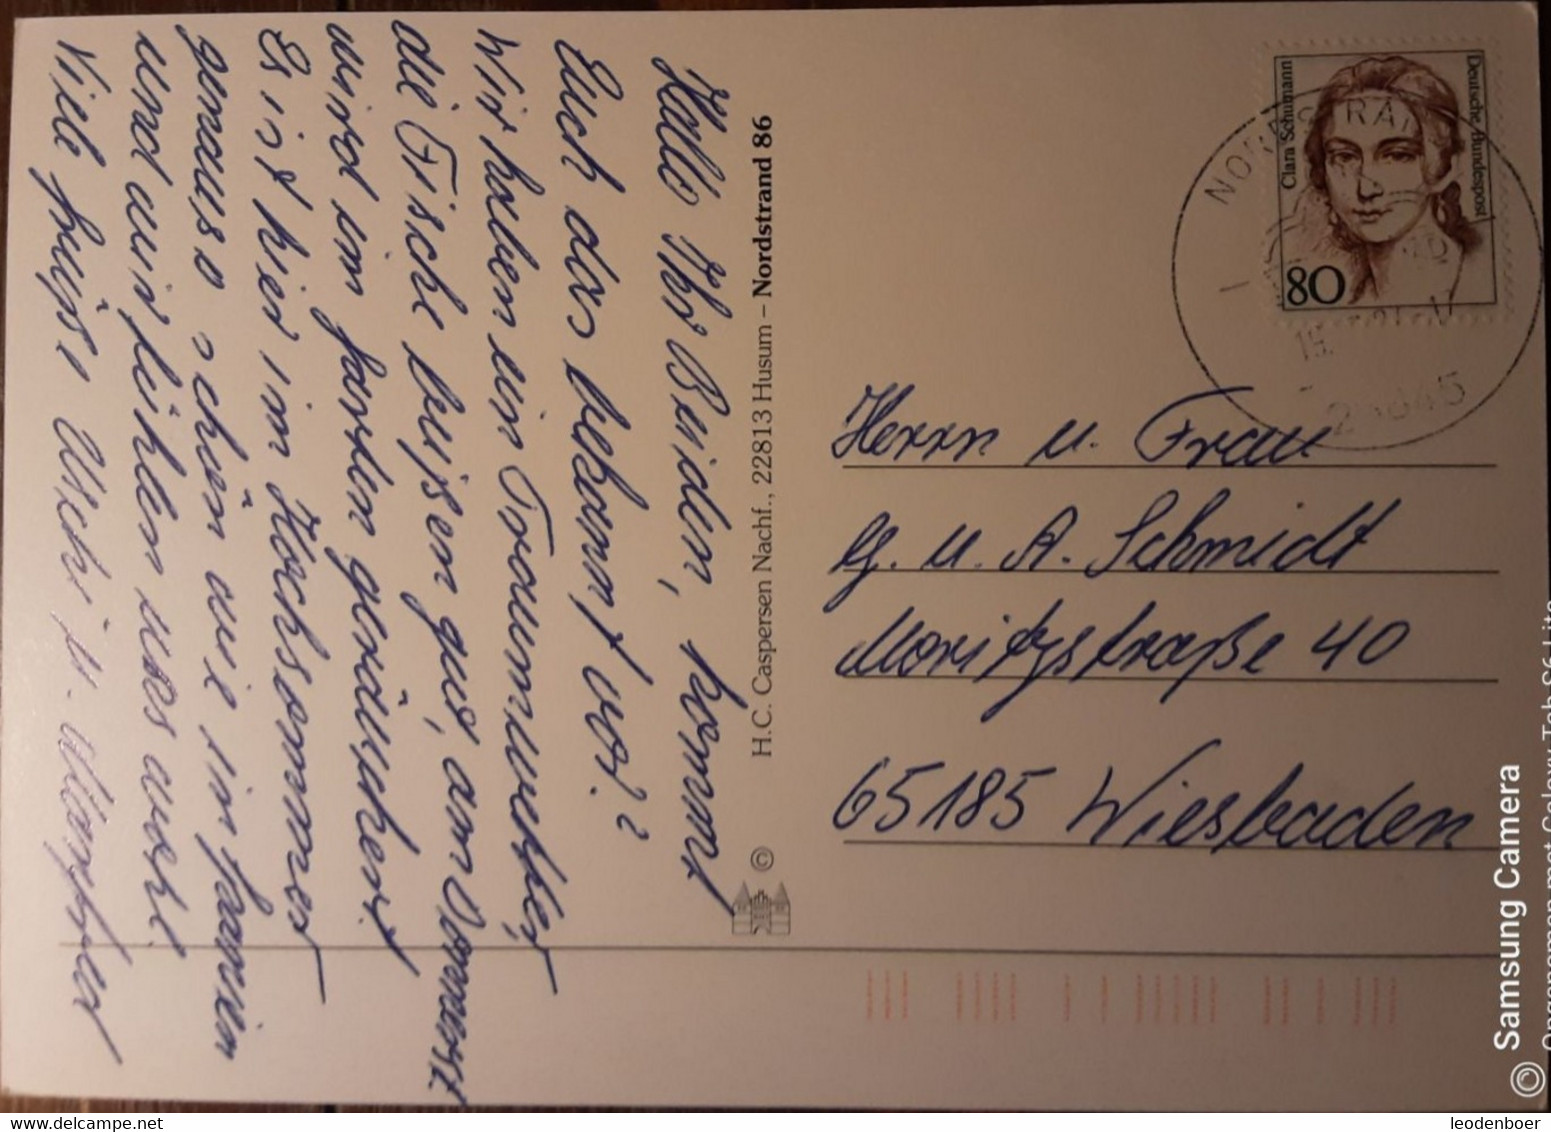 Hallo Ihr Beiden, kommt
Euch das bekannt vor?
Wir haben ein Traumwetter,
die Fische beißen gut, am Donnerst.
wird im Garten geräuchert.
Es ist hier im Hochsommer
genauso schön wie im
und wir fühlen uns wohl.
Viele Grüße Uschi u.
H.C. Caspersen Nachf., 22813 Husum – Nordstrand 86
©
Deutsche Bundespost
Clara Schumann
80
NORDSTRAND
25845
Herrn u. Frau
G. u. A. Schmidt
Moritzstraße 40
65185 Wiesbaden
© Samsung Camera
Opgenomen met Galaxy Tab S6 Lite
leodenboer